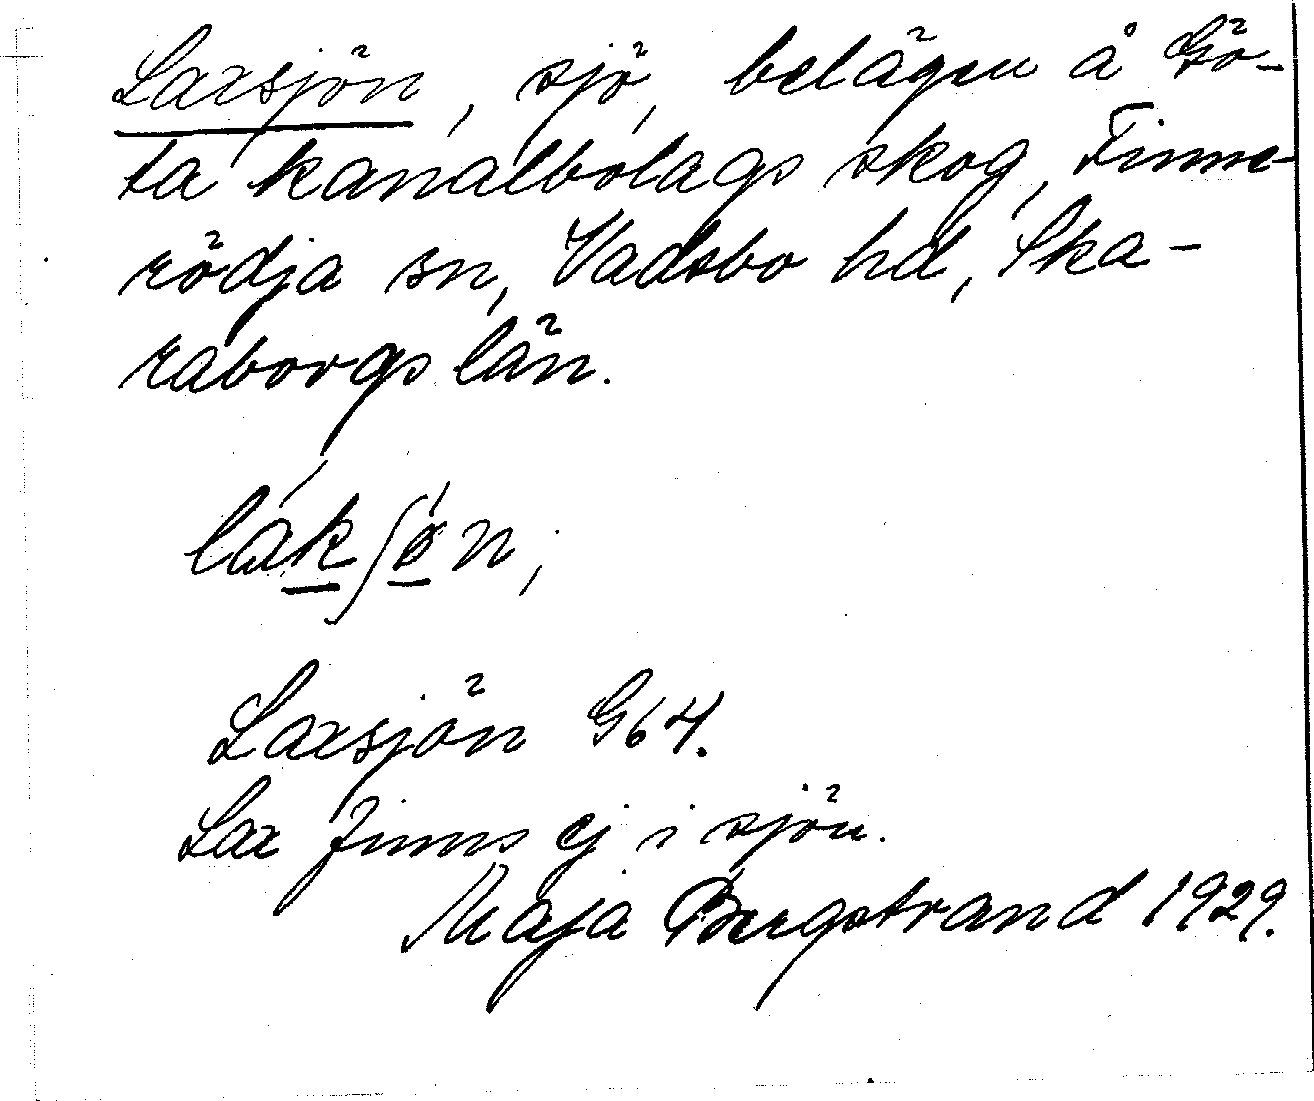 Laxsjön, sjö, belägen å Gö-
ta kanalbolags skog, Finne-
rödja sn, Vadsbo hd, Ska-
raborgs län.
lákʃǿn,
Laxsjön G64.
Lax finns ej i sjön.
Maja Bergstrand 1929.